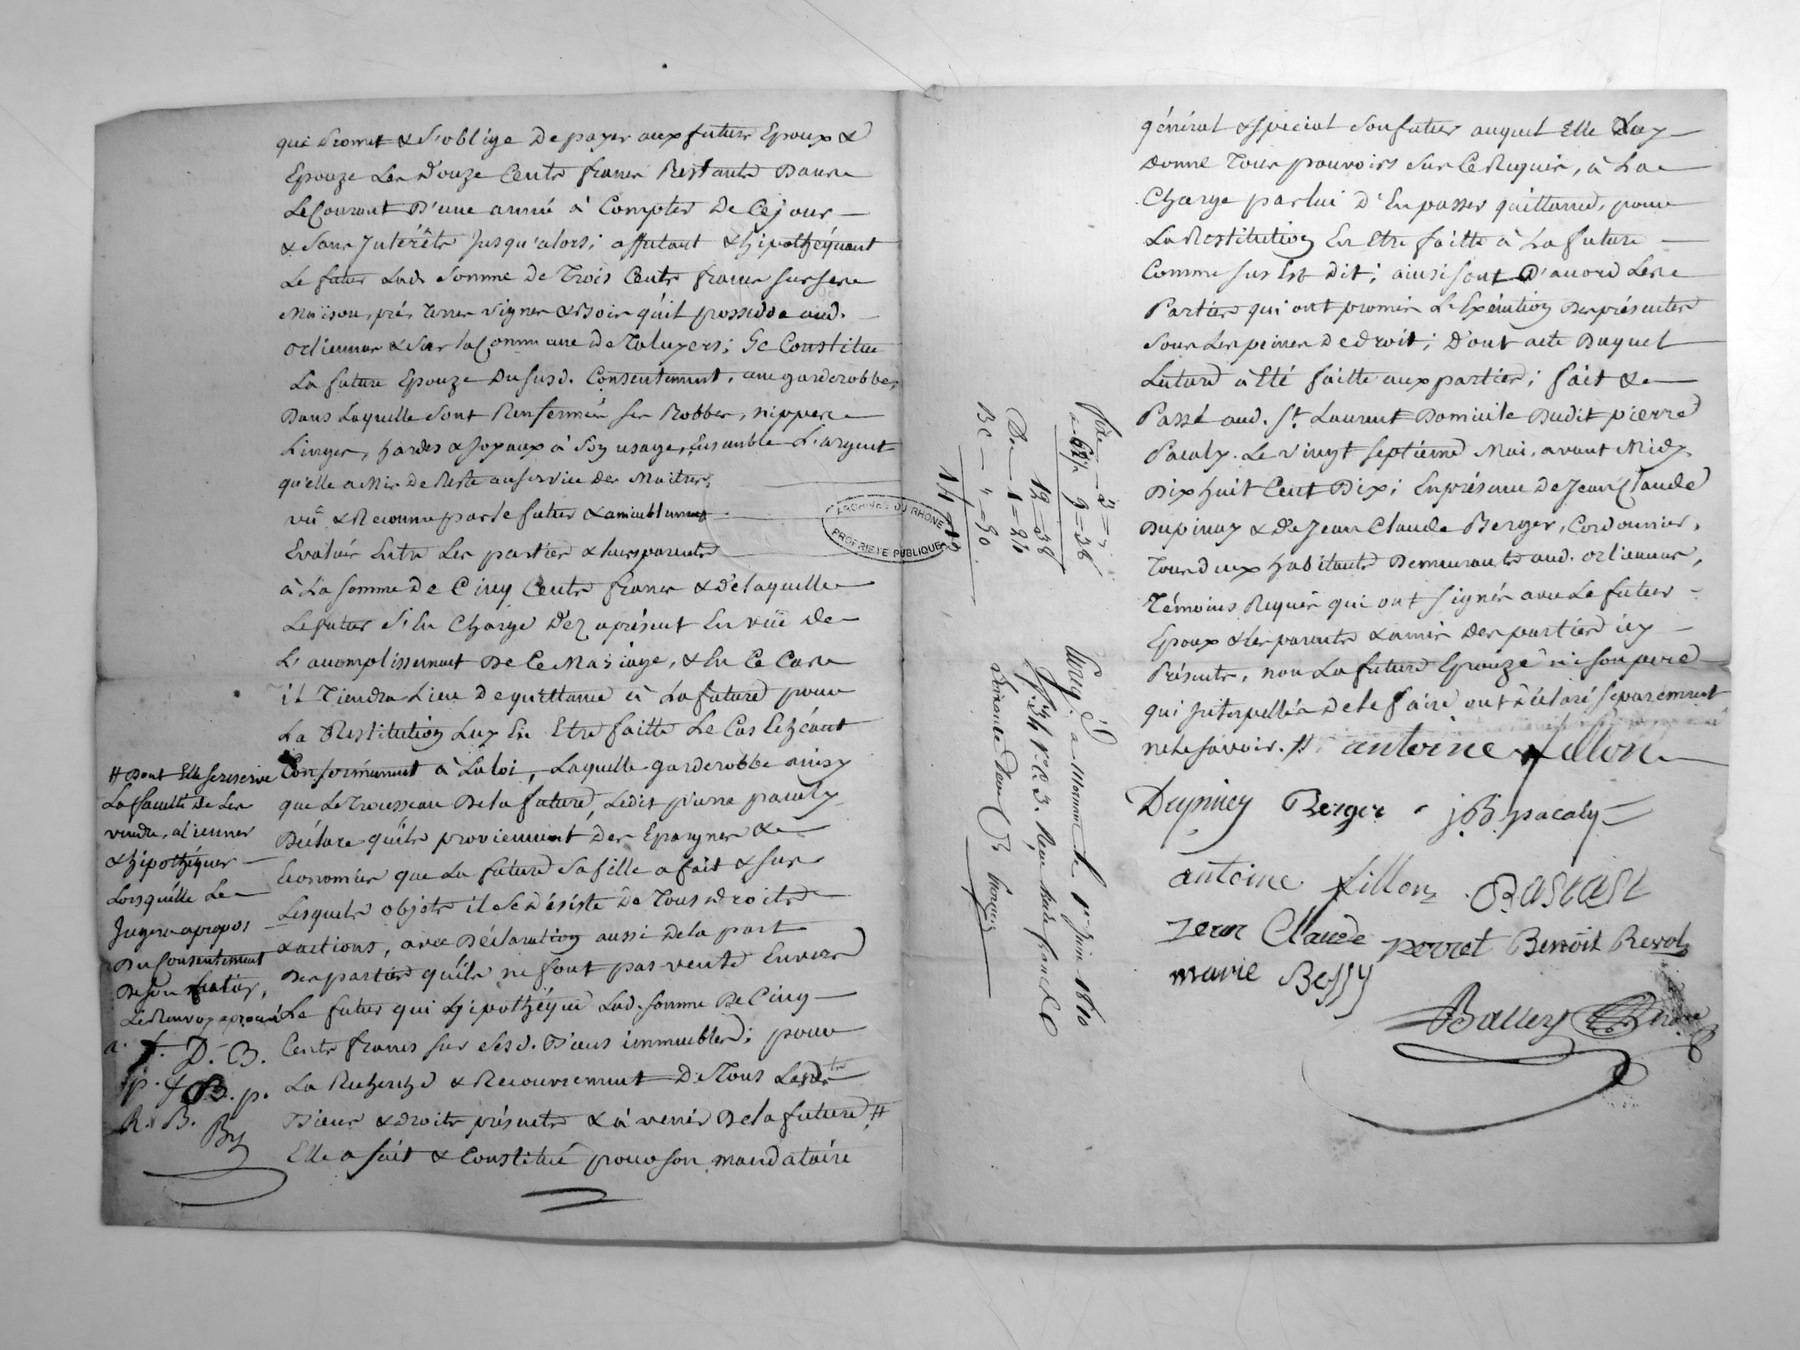 qui Promet & S'oblige De payer aux futurs Epoux &
Epouze Les D'ouze Cents francs Restants Dans
Le Courant D'une anné à Compter De Cejour
& Sans Intérêts Jusqu'alors; affutant & hipothéquant
Le futur Lad. Somme De Trois Cents francs sur ses
Maison, pré, terres vignes & Bois qu'il possede aud.
orlienas & Sur la Commune De Taluyers; Se Constitue
La future Epouze Du susd. Consentement, une garderobbe,
Dans Laquelle sont Renfermés ses Robbes, nippes
Linges, hardes & Joyaux à Son usage, Ensemble L'argent
qu'elle a Mis De Reste au service Des Maitres,
vû & Reconnu par le futur & amiablement
Evalués Entre Les parties & leurs parents
à La somme De Cinq Cents francs & De laquelle
Le futur S'En Charge D'Ez aprésent En vüe De
L'accomplissement De Ce Mariage, & En Ce Cas
il Tiendra Lieu De quittance à La future pour
La Restitution Luy En Etre faitte Le Cas Echéant
Conformement à La loi, Laquelle garderobbe ainsy
que Le Trousseau De la future, Ledit pierre pacaly
Déclare qu'ils proviennent Des Epargnes &
Economies que La future Sa fille a fait & sur
Lesquels objets il Se Désiste De Tous droits
& actions, avec Déclaration aussi De la part
Des parties qu'ils ne font pas vente Envers
Le futur qui hipothéque Lad. somme De Cinq
Cents francs sur Sesd. Biens immeubles; pour
La Recherche & Recouvrement De Tous Lesdts
Biens & Droits présents & à venir De la future #
Elle a fait & Constitué pour son mandataire
# Dont Elle se reserve
La faculté De Les
vendre, alienner
& hipothéquer
Lorsqu'elle Le
Jugera apropos
Du Consentement
De son futur,
Le Renvoy approuvé
a. f. D. B.
p. J B. p.
R. B.
By
archives du rhône
propriété publique
fixe — 3 =
9 = 36
12 = 36
De — 1 = 24
De — " = 90
14 = 
Enreg. à Mornant Le 1er Juin 1810
f° 34 r° C. 3. Reçu
général & special Son futur auquel Elle Luy
Donne Tous pouvoirs Sur Ce Requis, à La
Charge par lui D'En passer quittances, pour
La Restitution En Etre faitte à La future
Comme sus Est Dit; ainsi sont D'accord Les
Parties qui ont promis L'Exécution Des présentes
Sous Les peines De droit; D'ont acte Duquel
Lecture à Eté faitte aux parties; fait &
Passé aud. St. Laurent Domicile Dudit pierre
Pacaly. Le vingt septième Mai, avant Midy,
Dix huit Cent Dix; En présence De Jean Claude
Dupinay & De Jean Claude Berger, Cordonnier,
Tous deux habitants Demeurants aud. orlienas,
Témoins Requis qui ont Signés avec Le futur
Epoux & les parents & amis Des parties icy
Présents, non La future Epouze ni son pere
qui Interpellés De le faire ont Déclaré séparement
ne Le Savoir. # antoine fillon
Dupiney Berger j B pacaly
antoine fillon Bascast
Jean Claude perret Benoit Revol
marie Bessy
Ballety